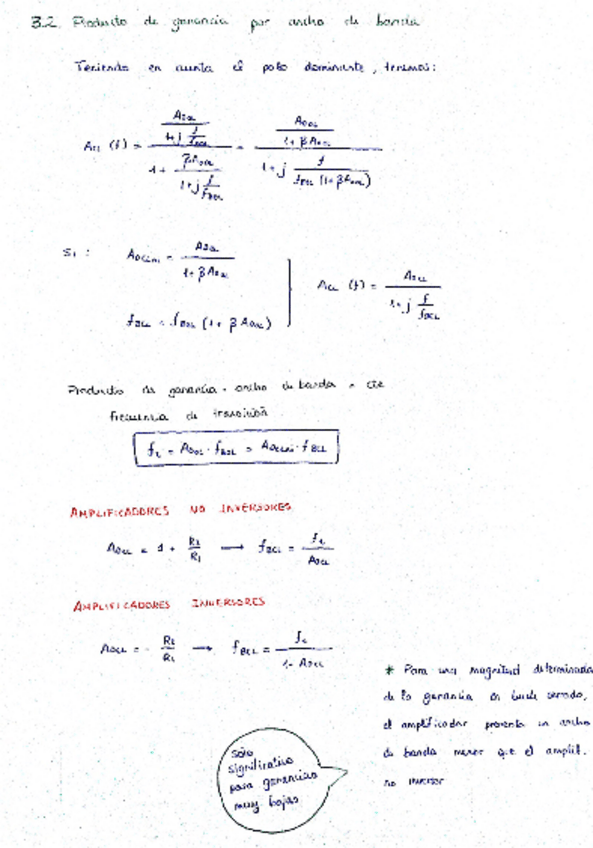 3.2 Producto de ganancia por ancho de banda
Teniendo en cuenta el polo dominante, tenemos:
A_CL (f) = (A_0OL / (1+j f/f_BOL)) / (1 + βA_0OL / (1+j f/f_BOL)) = (A_0OL / (1+βA_0OL)) / (1+j f / (f_BOL (1+βA_0OL)))
Si : A_0CLni = A_0OL / (1+βA_0OL)
A_CL (f) = A_0CL / (1+j f/f_BCL)
f_BCL = f_BOL (1+ β A_0OL)
Producto de ganancia - ancho de banda = cte
frecuencia de transición
f_t = A_0OL · f_BOL = A_0CLni · f_BCL
AMPLIFICADORES NO INVERSORES
A_0CL = 1 + R2/R1 → f_BCL = f_t / A_0CL
AMPLIFICADORES INVERSORES
A_0CL = - R2/R1 → f_BCL = f_t / (1 - A_0CL)
* Para una magnitud determinada
de la ganancia en bucle cerrado,
el amplificador presenta un ancho
de banda menor que el amplif.
no inversor
Sólo
significativo
para ganancias
muy bajas